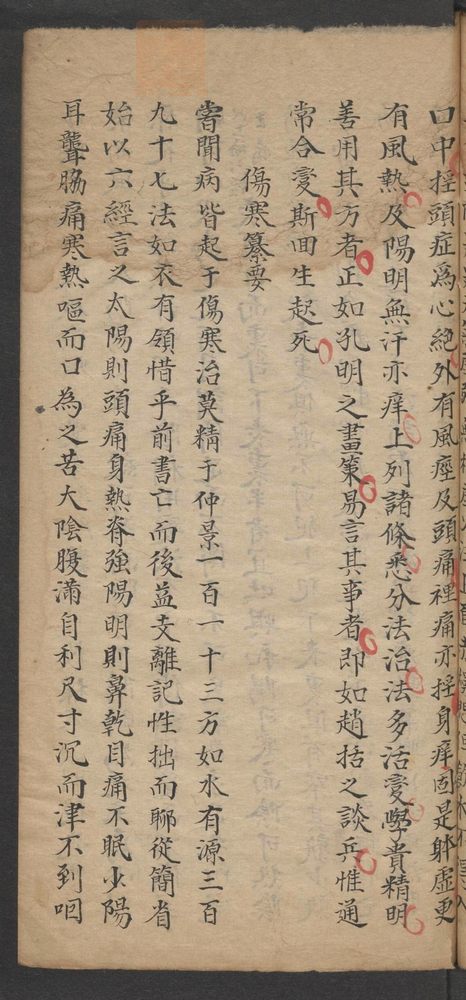 口中揺頭症為心絶外有風痙及頭痛裡痛亦揺身痒固是躰虛更
有風熱及陽明無汗亦痒上列諸條悉分法治法多活变學貴精明
善用其方者正如孔明之畫策易言其事者即如趙括之談兵惟通
常合变斯囬生起死
傷寒纂要
甞聞病皆起于傷寒治莫精于仲景一百一十三方如水有源三百
九十七法如衣有領惜乎前書亡而後益支離記性拙而聊從簡省
始以六經言之太陽則頭痛身熱脊強陽明則鼻乾目痛不眠少陽
耳聾脇痛寒熱嘔而口為之苦大陰腹滿自利尺寸沉而津不到咽